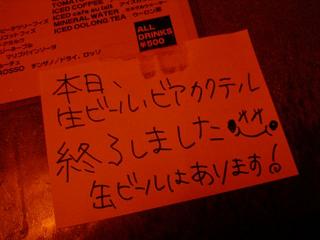 TOMATO
ICED COFFEE
ICED cafe au lait アイスカ
MINERAL WATER
ICED OOLONG TEA ウーロン茶
ALL
DRINKS
¥500
ROSSO
本日、
生ビール、ビアカクテル
終了しました
缶ビールはあります!